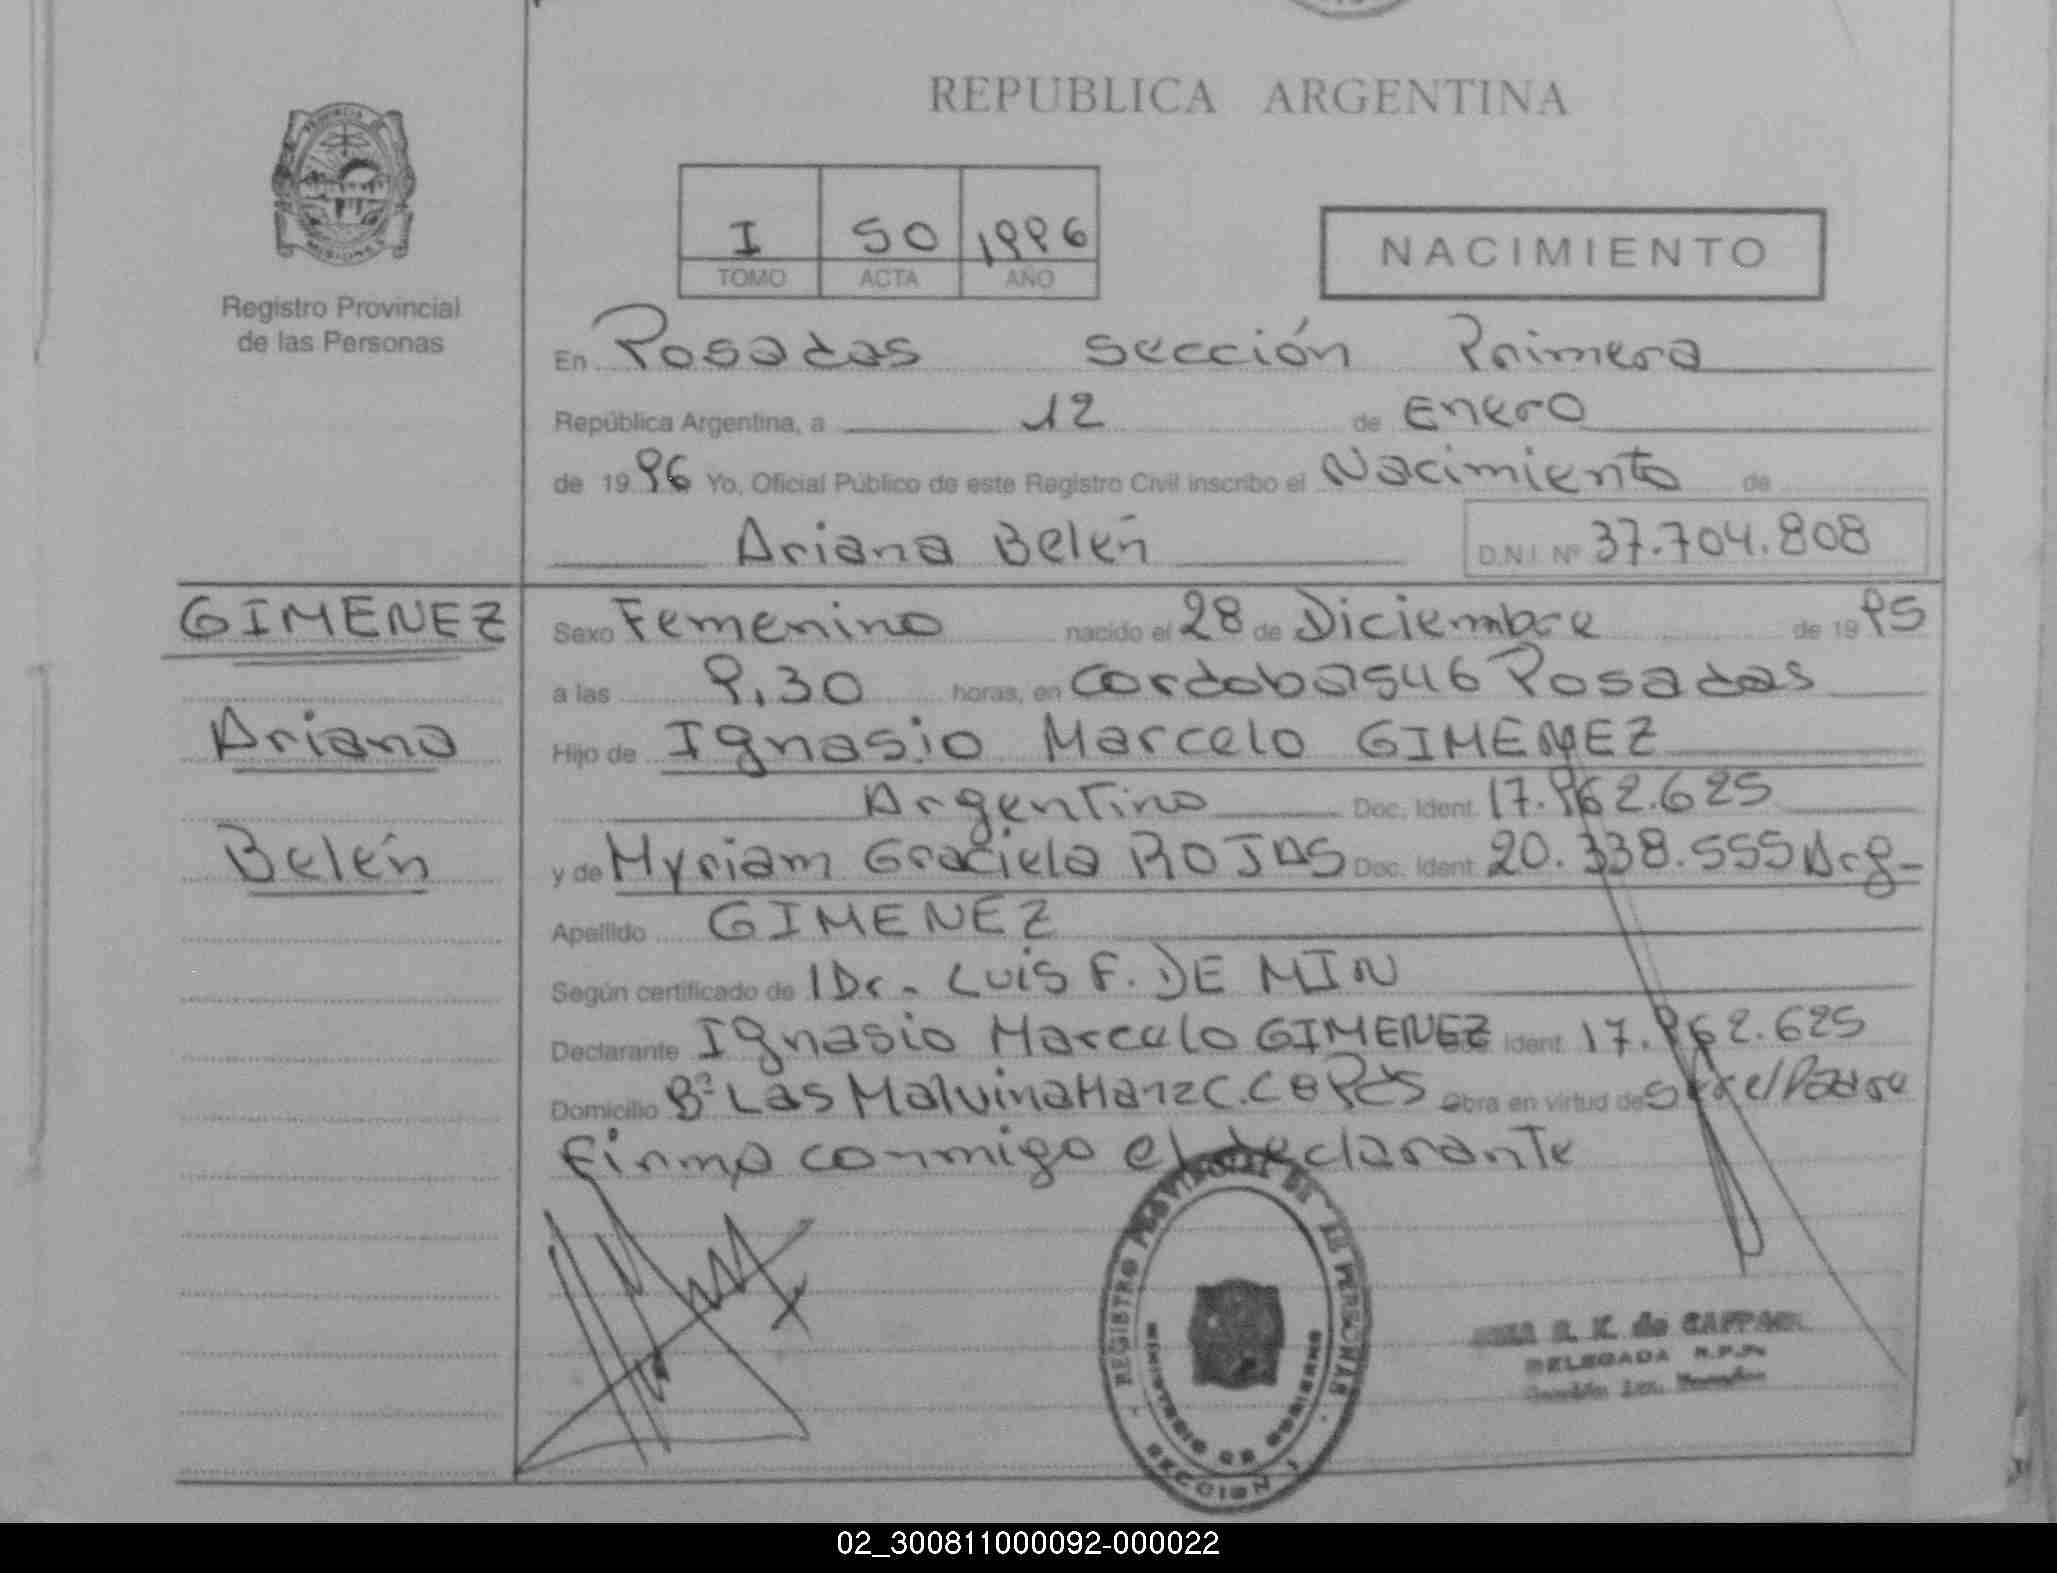 REPUBLICA ARGENTINA
I 50 1996
TOMO ACTA AÑO
NACIMIENTO
Registro Provincial
de las Personas
En Posadas Sección Primera
República Argentina, a 12 de Enero
de 1996 Yo, Oficial Público de este Registro Civil inscribo el Nacimiento de
Ariana Belén
D.N.I. Nº 37.704.808
GIMENEZ
Ariana
Belén
Sexo Femenino nacido el 28 de Diciembre de 1995
a las 9.30 horas, en Cordoba 1546 Posadas
Hijo de Ignasio Marcelo GIMENEZ
Argentino Doc. Ident. 17.962.625
y de Myriam Graciela ROJAS Doc. Ident. 20.338.555 Arg-
Apellido GIMENEZ
Según certificado de Dr. LUIS F. DE MIN
Declarante Ignasio Marcelo GIMENEZ Doc. Ident. 17.962.625
Domicilio Bº Las Malvina Manz C. Obra en virtud de el Padre
Firma conmigo el declarante
REGISTRO PROVINCIAL DE LAS PERSONAS
MINISTERIO DE GOBIERNO
SECCION 1
DELEGADA R.P.P.
02_300811000092-000022